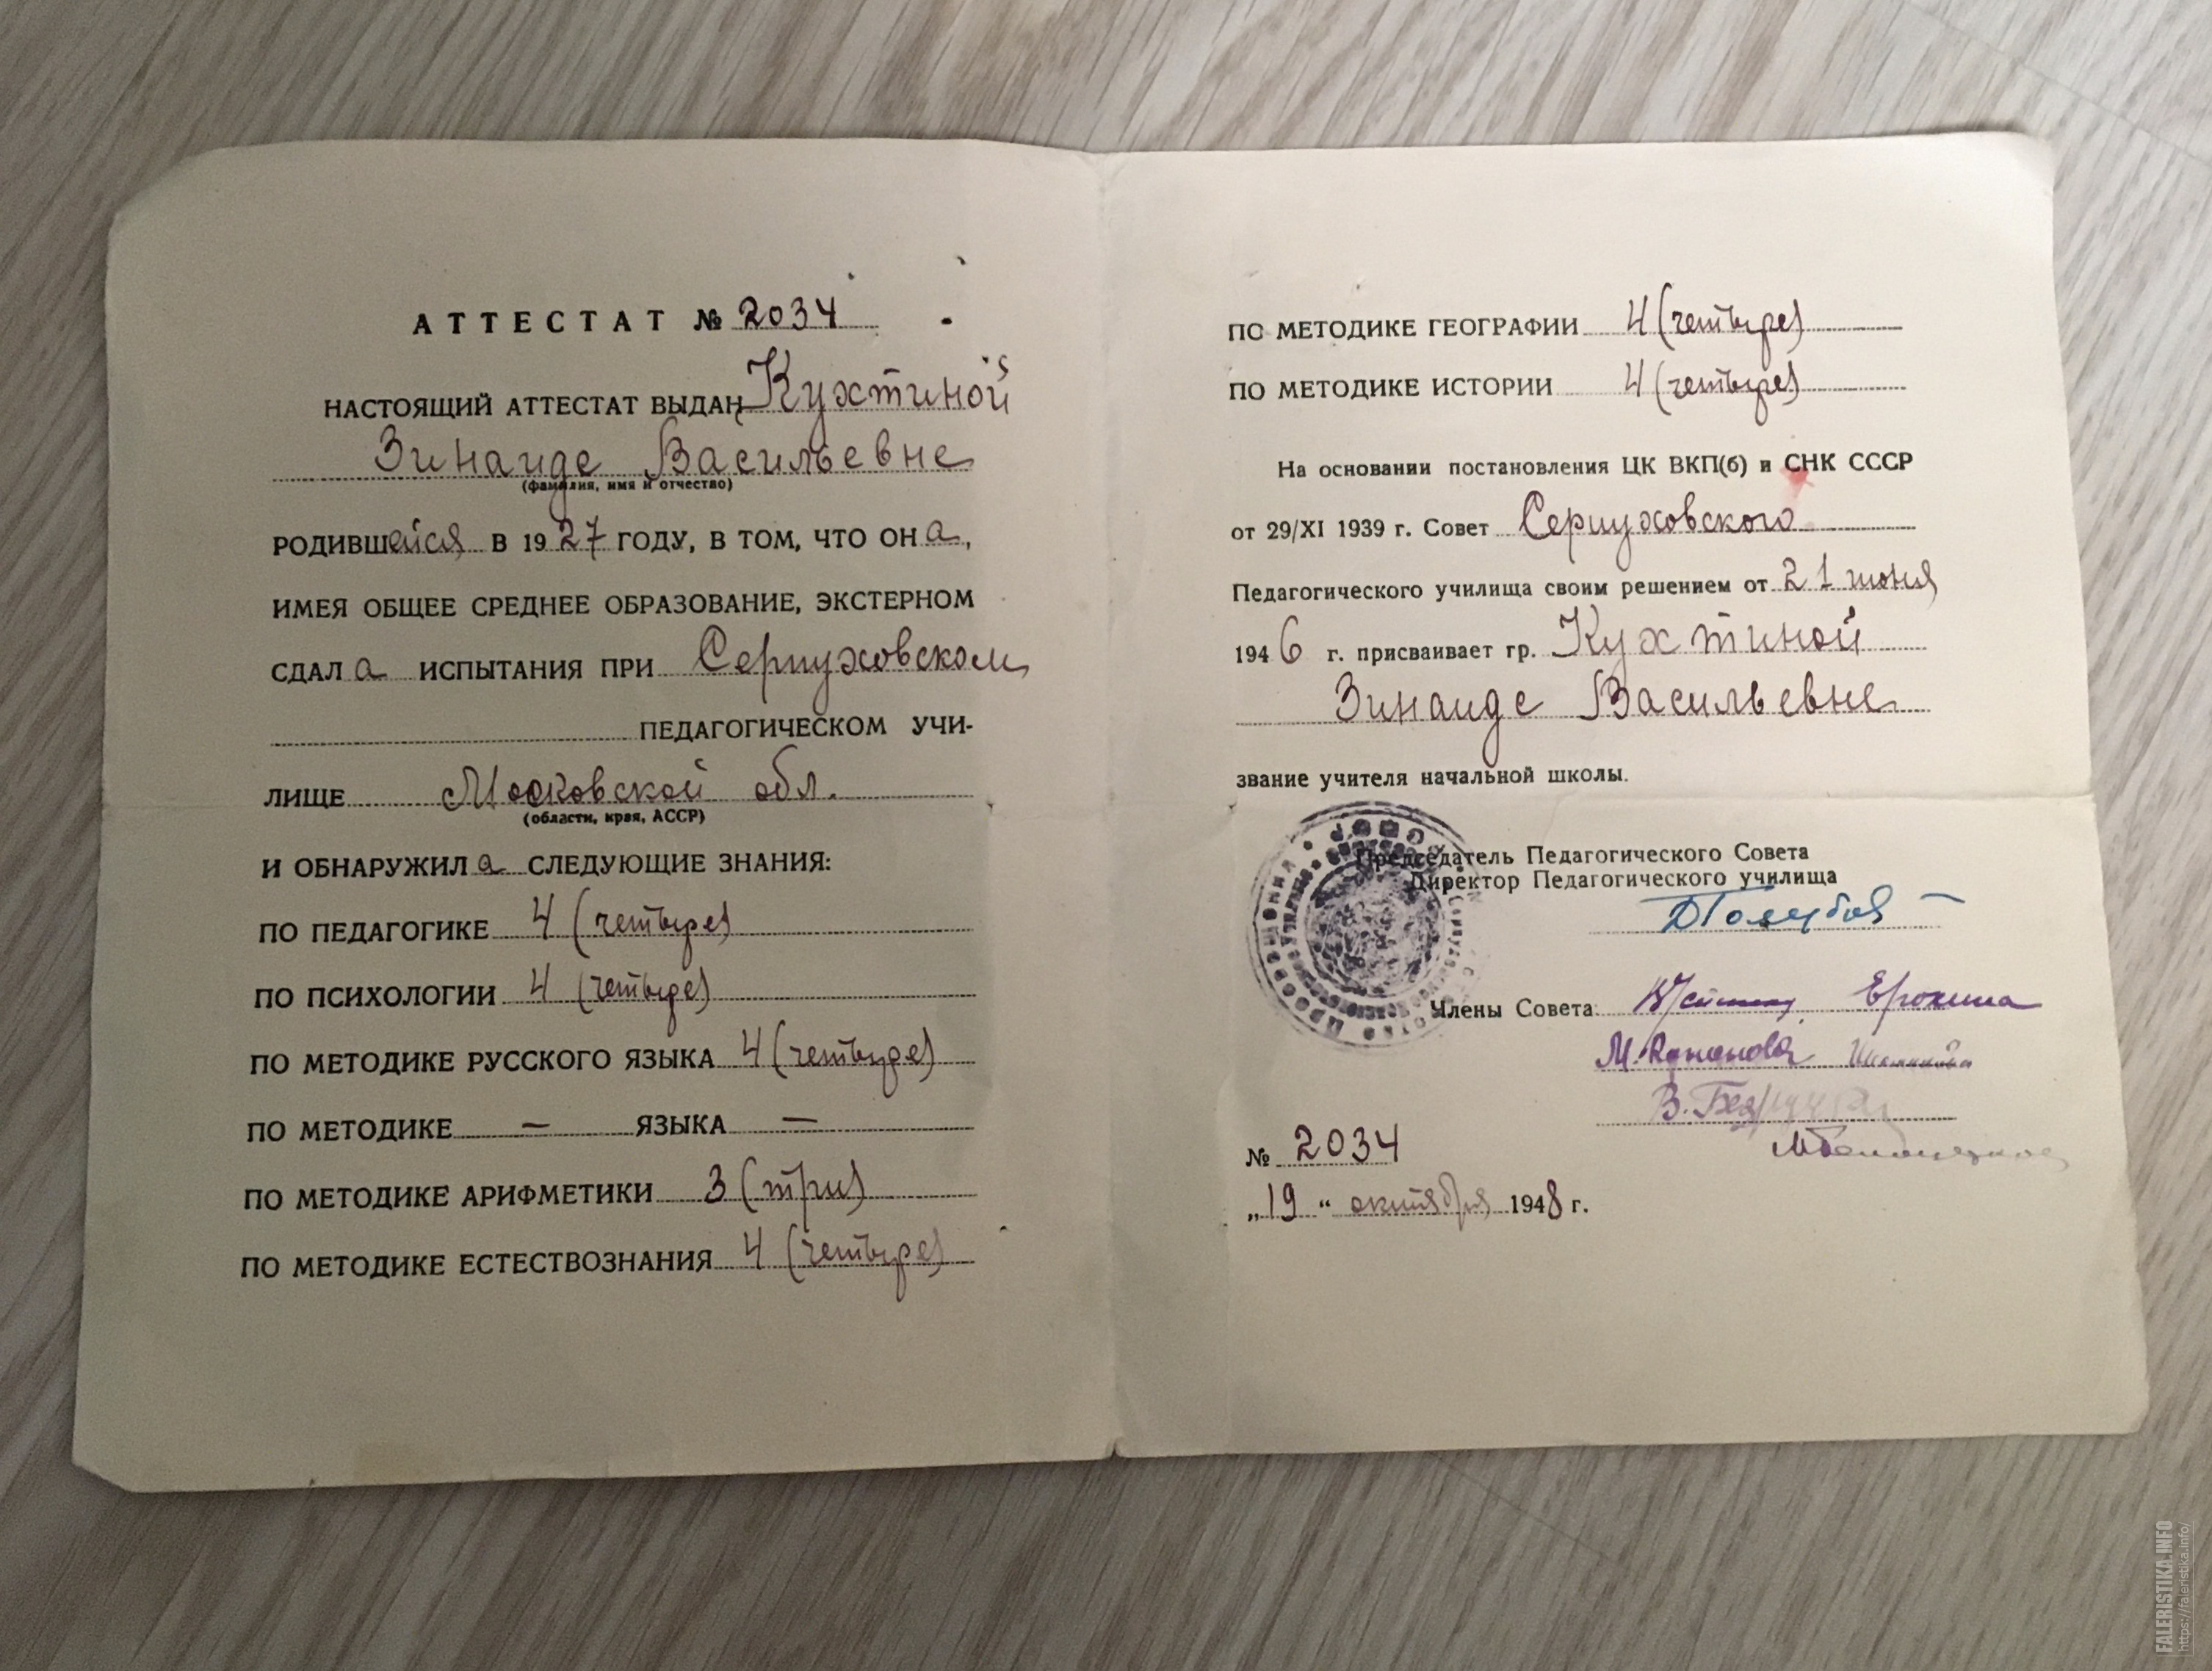 АТТЕСТАТ № 2034
НАСТОЯЩИЙ АТТЕСТАТ ВЫДАН Кухтиной
Зинаиде Васильевне
(фамилия, имя и отчество)
РОДИВШейся В 1927 ГОДУ, В ТОМ, ЧТО ОНа,
ИМЕЯ ОБЩЕЕ СРЕДНЕЕ ОБРАЗОВАНИЕ, ЭКСТЕРНОМ
СДАЛа ИСПЫТАНИЯ ПРИ Серпуховском
ПЕДАГОГИЧЕСКОМ УЧИ-
ЛИЩЕ Московской обл.
(области, края, АССР)
И ОБНАРУЖИЛа СЛЕДУЮЩИЕ ЗНАНИЯ:
ПО ПЕДАГОГИКЕ 4 (четыре)
ПО ПСИХОЛОГИИ 4 (четыре)
ПО МЕТОДИКЕ РУССКОГО ЯЗЫКА 4 (четыре)
ПО МЕТОДИКЕ — ЯЗЫКА —
ПО МЕТОДИКЕ АРИФМЕТИКИ 3 (три)
ПО МЕТОДИКЕ ЕСТЕСТВОЗНАНИЯ 4 (четыре)
ПО МЕТОДИКЕ ГЕОГРАФИИ 4 (четыре)
ПО МЕТОДИКЕ ИСТОРИИ 4 (четыре)
На основании постановления ЦК ВКП(б) и СНК СССР
от 29/XI 1939 г. Совет Серпуховского
Педагогического училища своим решением от 21 июня
1946 г. присваивает гр. Кухтиной
Зинаиде Васильевне
звание учителя начальной школы.
Председатель Педагогического Совета
Директор Педагогического училища
Члены Совета:
№ 2034
„19“ октября 1948 г.
FALERISTIKA.INFO
https://faleristika.info/